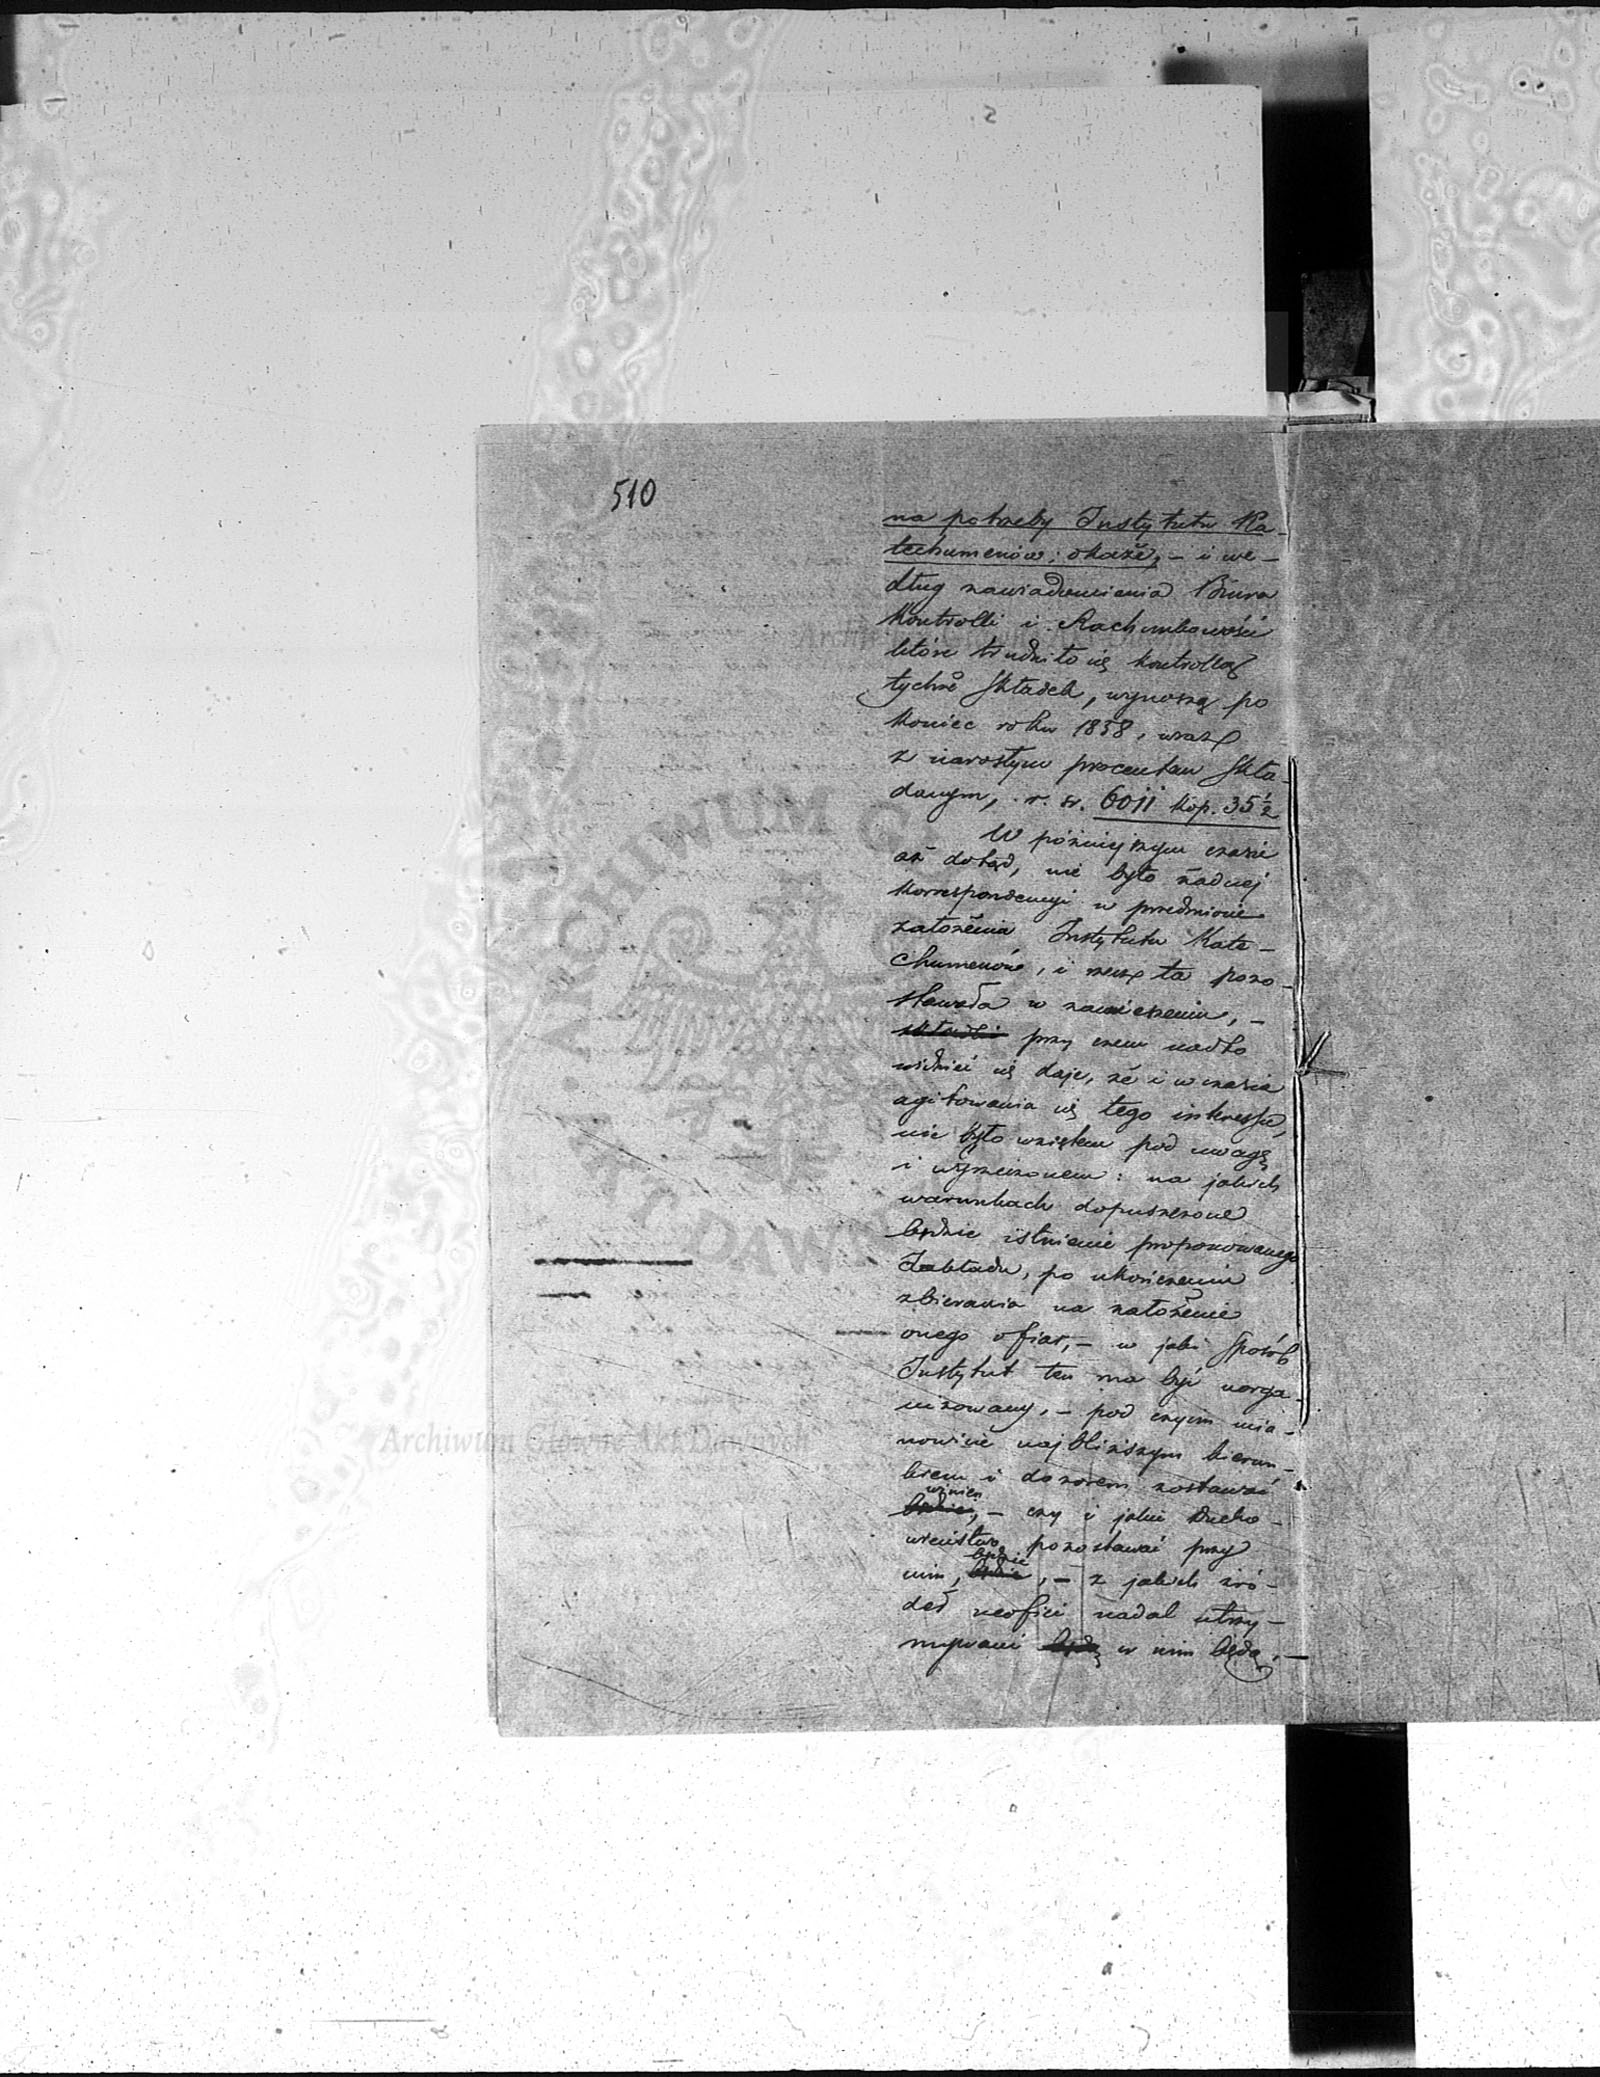 510
na potrzeby Instytutu Ka-
techumenów: okaże, – i we-
dług zawiadomienia Biura
Kontrolli i Rachunkowości
które trudniło się kontrollą
tychże składek, wynoszą po
koniec roku 1838, wraz
z narosłym procentem skła-
danym, r. sr. 6011 kop. 35½
W póżniejszym czasie
aż dotąd, nie było żadnej
korrespondencyi w przedmiocie
założenia Instytutu Kate-
chumenów, i rzecz ta pozo-
stawała w zawieszeniu, –
składki przy czem nadto
widzieć się daje, że i w czasie
agitowania się tego interessu,
nie było wziętem pod uwagę
i wyrzeczonem: na jakich
warunkach dopuszczone
będzie istnienie proponowanego
Zakładu, po ukończeniu
zbierania na założenie
onego ofiar, – w jaki sposób
Instytut ten ma być uorga-
nizowany, – pod czyim mia-
nowicie najbliższym kierun-
kiem i dozorem zostawać
winien
będzie, – czy i jakie Ducho-
wieństwo pozostawać przy
będzie
nim, będzie, – z jakich źró-
deł neofici nadal utrzy-
mywani będą w nim będą, –
ARCHIWUM GŁ
AKT DAWN
Archiwum Główne Akt Dawnych